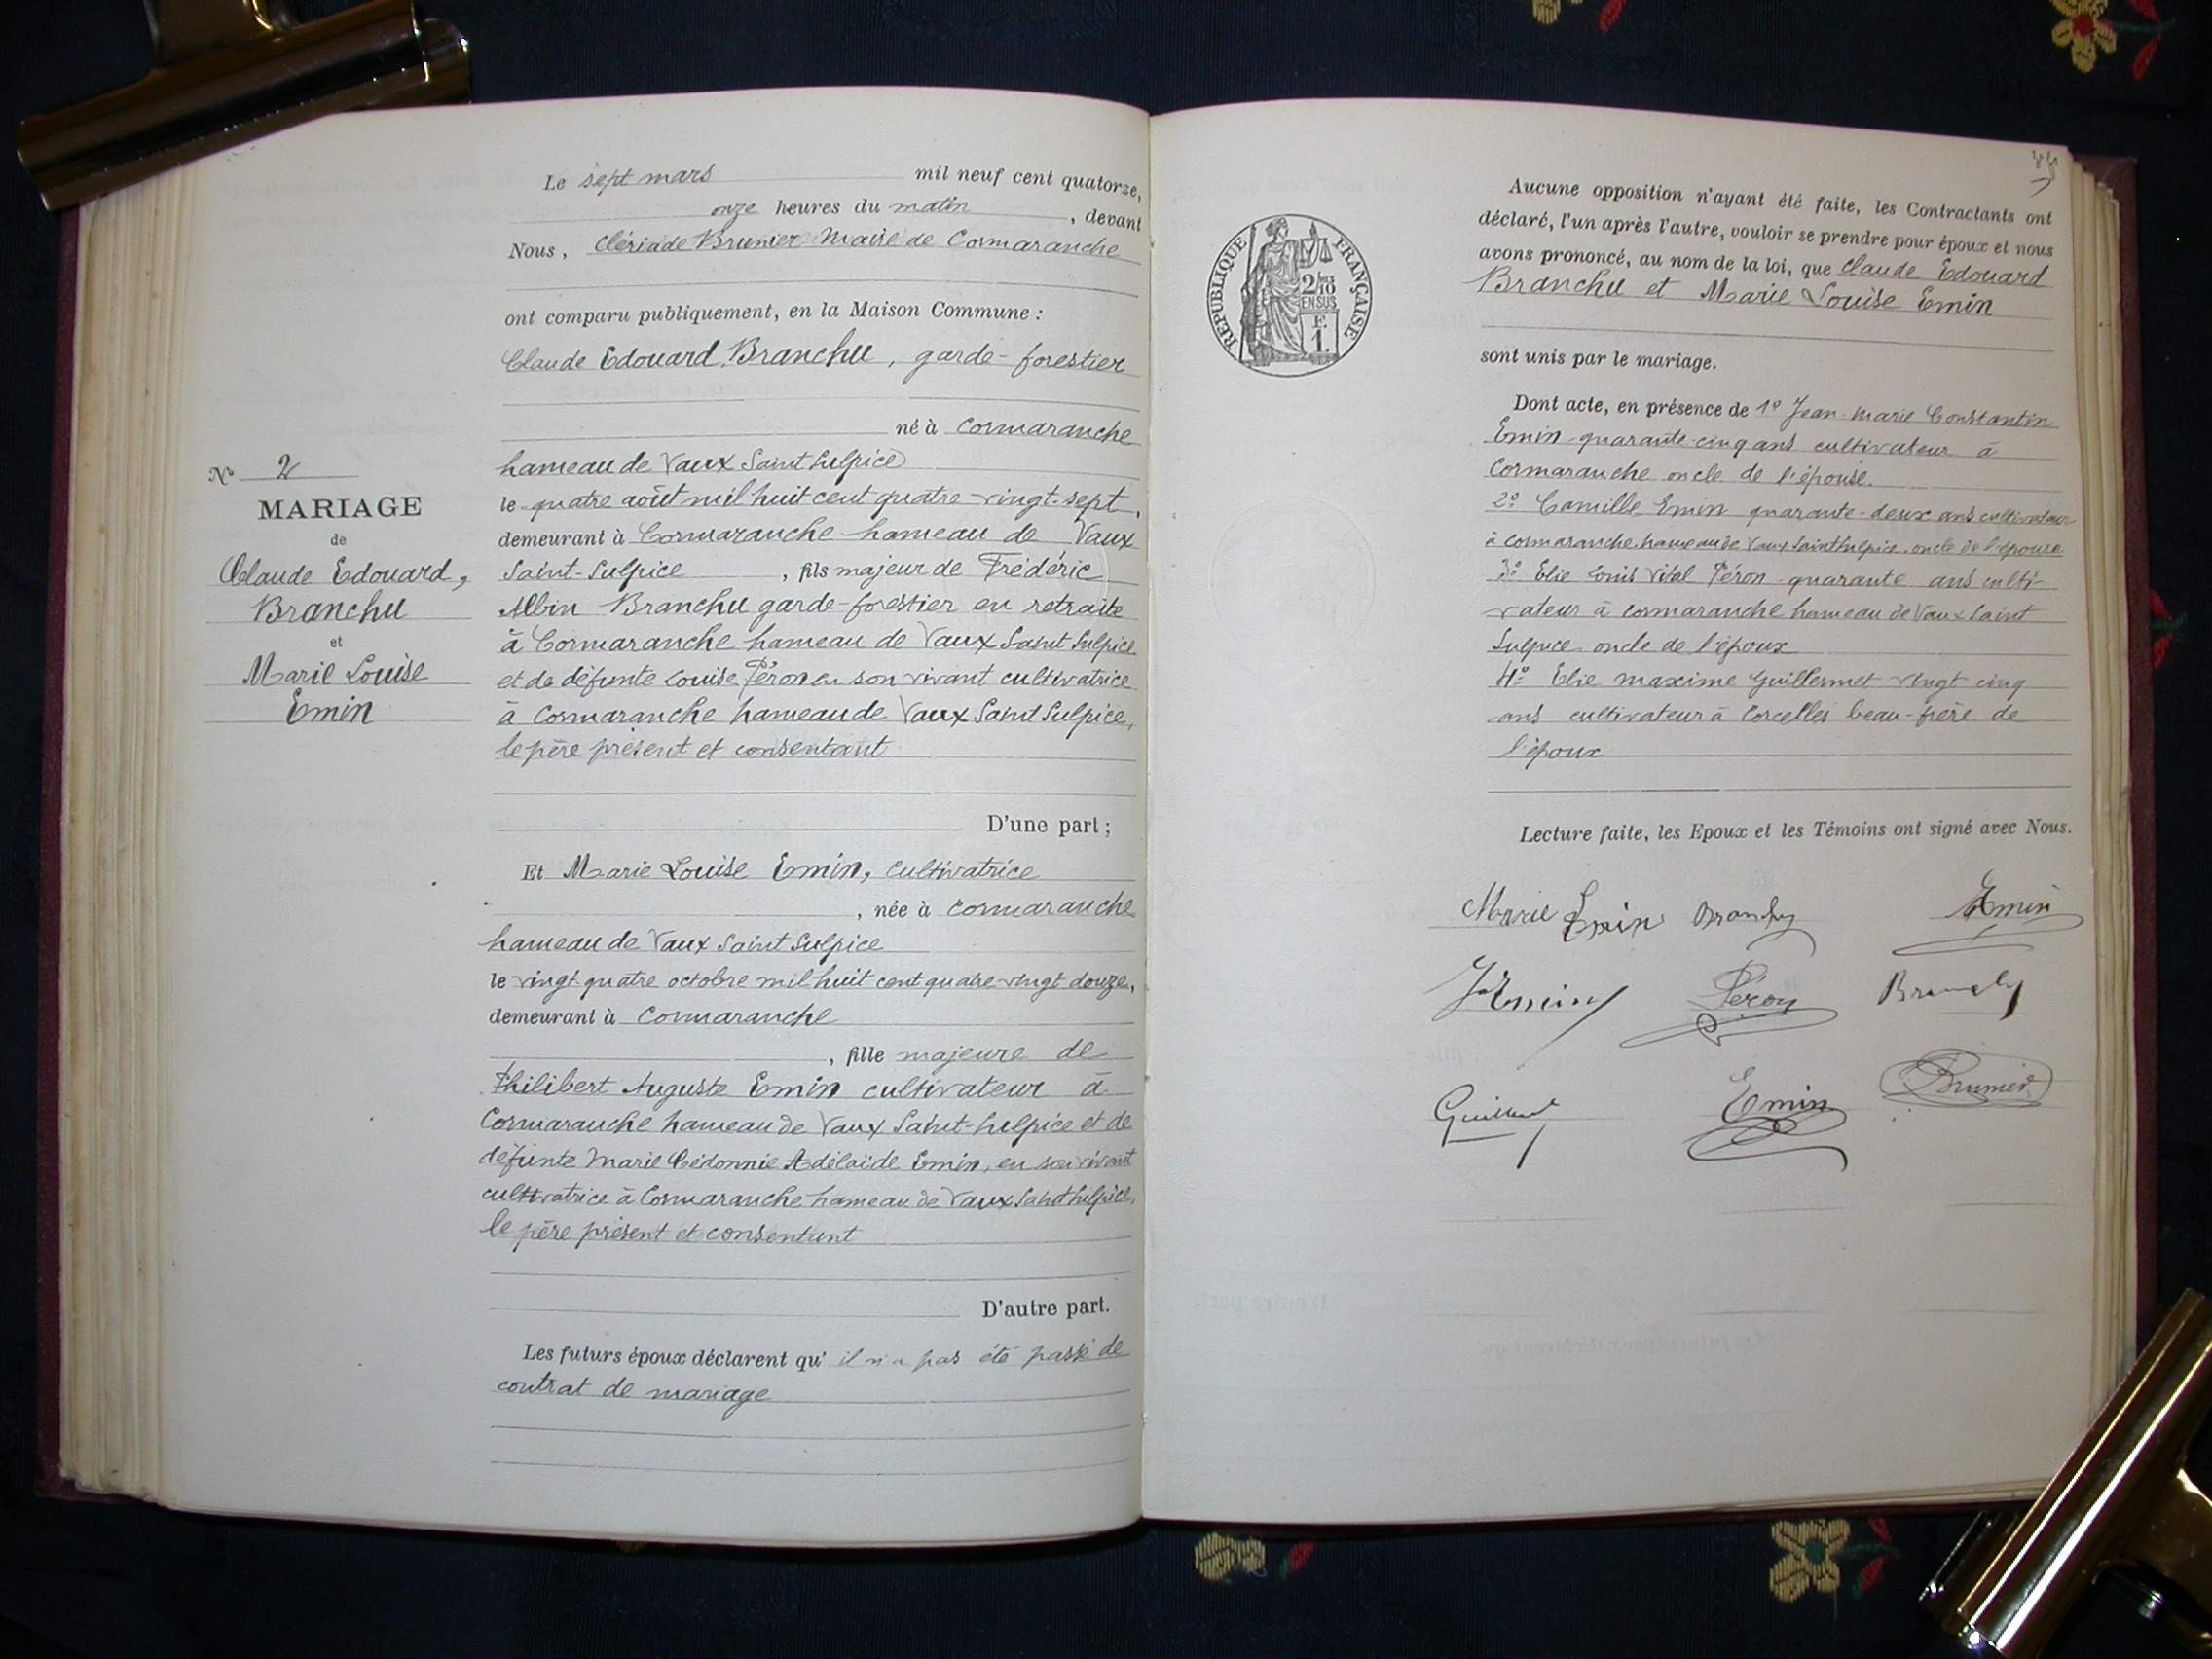 Le sept mars mil neuf cent quatorze,
onze heures du matin, devant
Nous, Clériade Brunier Maire de Cormaranche
ont comparu publiquement, en la Maison Commune :
Claude Edouard Branchu, garde-forestier
né à Cormaranche
hameau de Vaux Saint Sulpice
le quatre août mil huit cent quatre-vingt-sept,
demeurant à Cormaranche hameau de Vaux
Saint-Sulpice, fils majeur de Frédéric
Albin Branchu garde-forestier en retraite
à Cormaranche hameau de Vaux Saint Sulpice
et de défunte Louise Péron en son vivant cultivatrice
à Cormaranche hameau de Vaux Saint Sulpice,
le père présent et consentant
D'une part ;
N° 2
MARIAGE
de
Claude Edouard,
Branchu
et
Marie Louise
Emin
Et Marie Louise Emin, cultivatrice
, née à Cormaranche
hameau de Vaux Saint Sulpice
le vingt quatre octobre mil huit cent quatre-vingt douze,
demeurant à Cormaranche
, fille majeure de
Philibert Auguste Emin cultivateur à
Cormaranche hameau de Vaux Saint-Sulpice et de
défunte Marie Adélaïde Emin, en son vivant
cultivatrice à Cormaranche hameau de Vaux Saint Sulpice,
le père présent et consentant
D'autre part.
Les futurs époux déclarent qu' il n'a pas été passé de
contrat de mariage
REPUBLIQUE FRANÇAISE
2/10
EN SUS
F.
1.
Aucune opposition n'ayant été faite, les Contractants ont
déclaré, l'un après l'autre, vouloir se prendre pour époux et nous
avons prononcé, au nom de la loi, que Claude Edouard
Branchu et Marie Louise Emin
sont unis par le mariage.
Dont acte, en présence de 1° Jean-Marie Constantin
Emin quarante-cinq ans cultivateur à
Cormaranche oncle de l'épouse.
2° Camille Emin quarante-deux ans cultivateur
à Cormaranche hameau de Vaux Saint Sulpice, oncle de l'épouse
3° Elie Louis Vital Péron quarante ans culti-
vateur à Cormaranche hameau de Vaux Saint
Sulpice oncle de l'époux
4° Elie Maxime Guillermet vingt cinq
ans cultivateur à Corcelles beau-frère de
l'époux
Lecture faite, les Epoux et les Témoins ont signé avec Nous.
Marie Emin Branchu Emin
J Emin Péron Branchu
Emin Brunier